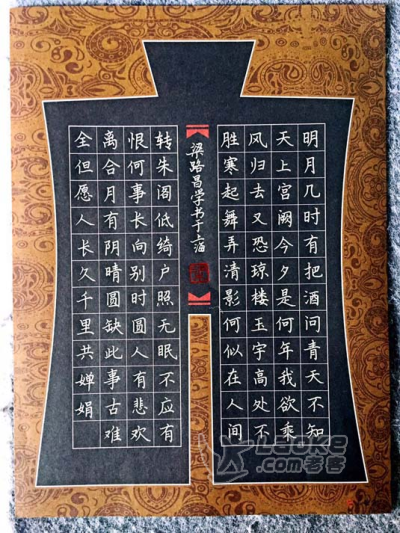 明月几时有把酒问青天不知
天上宫阙今夕是何年我欲乘
风归去又恐琼楼玉宇高处不
胜寒起舞弄清影何似在人间
梁路昌学书于
转朱阁低绮户照无眠不应有
恨何事长向别时圆人有悲欢
离合月有阴晴圆缺此事古难
全但愿人长久千里共婵娟
Laoke
.com老客